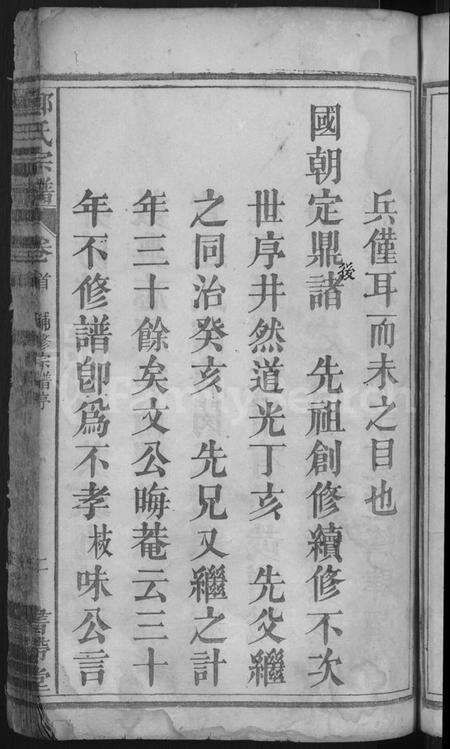 兵僅耳而未之目也
國朝定鼎後諸 先祖創修續修不次
世序井然道光丁亥 先父繼
之同治癸亥 先兄又繼之計
年三十餘矣文公晦菴云三十
年不修譜卽爲不孝枝味公言
氏宗譜 卷首 宗譜序